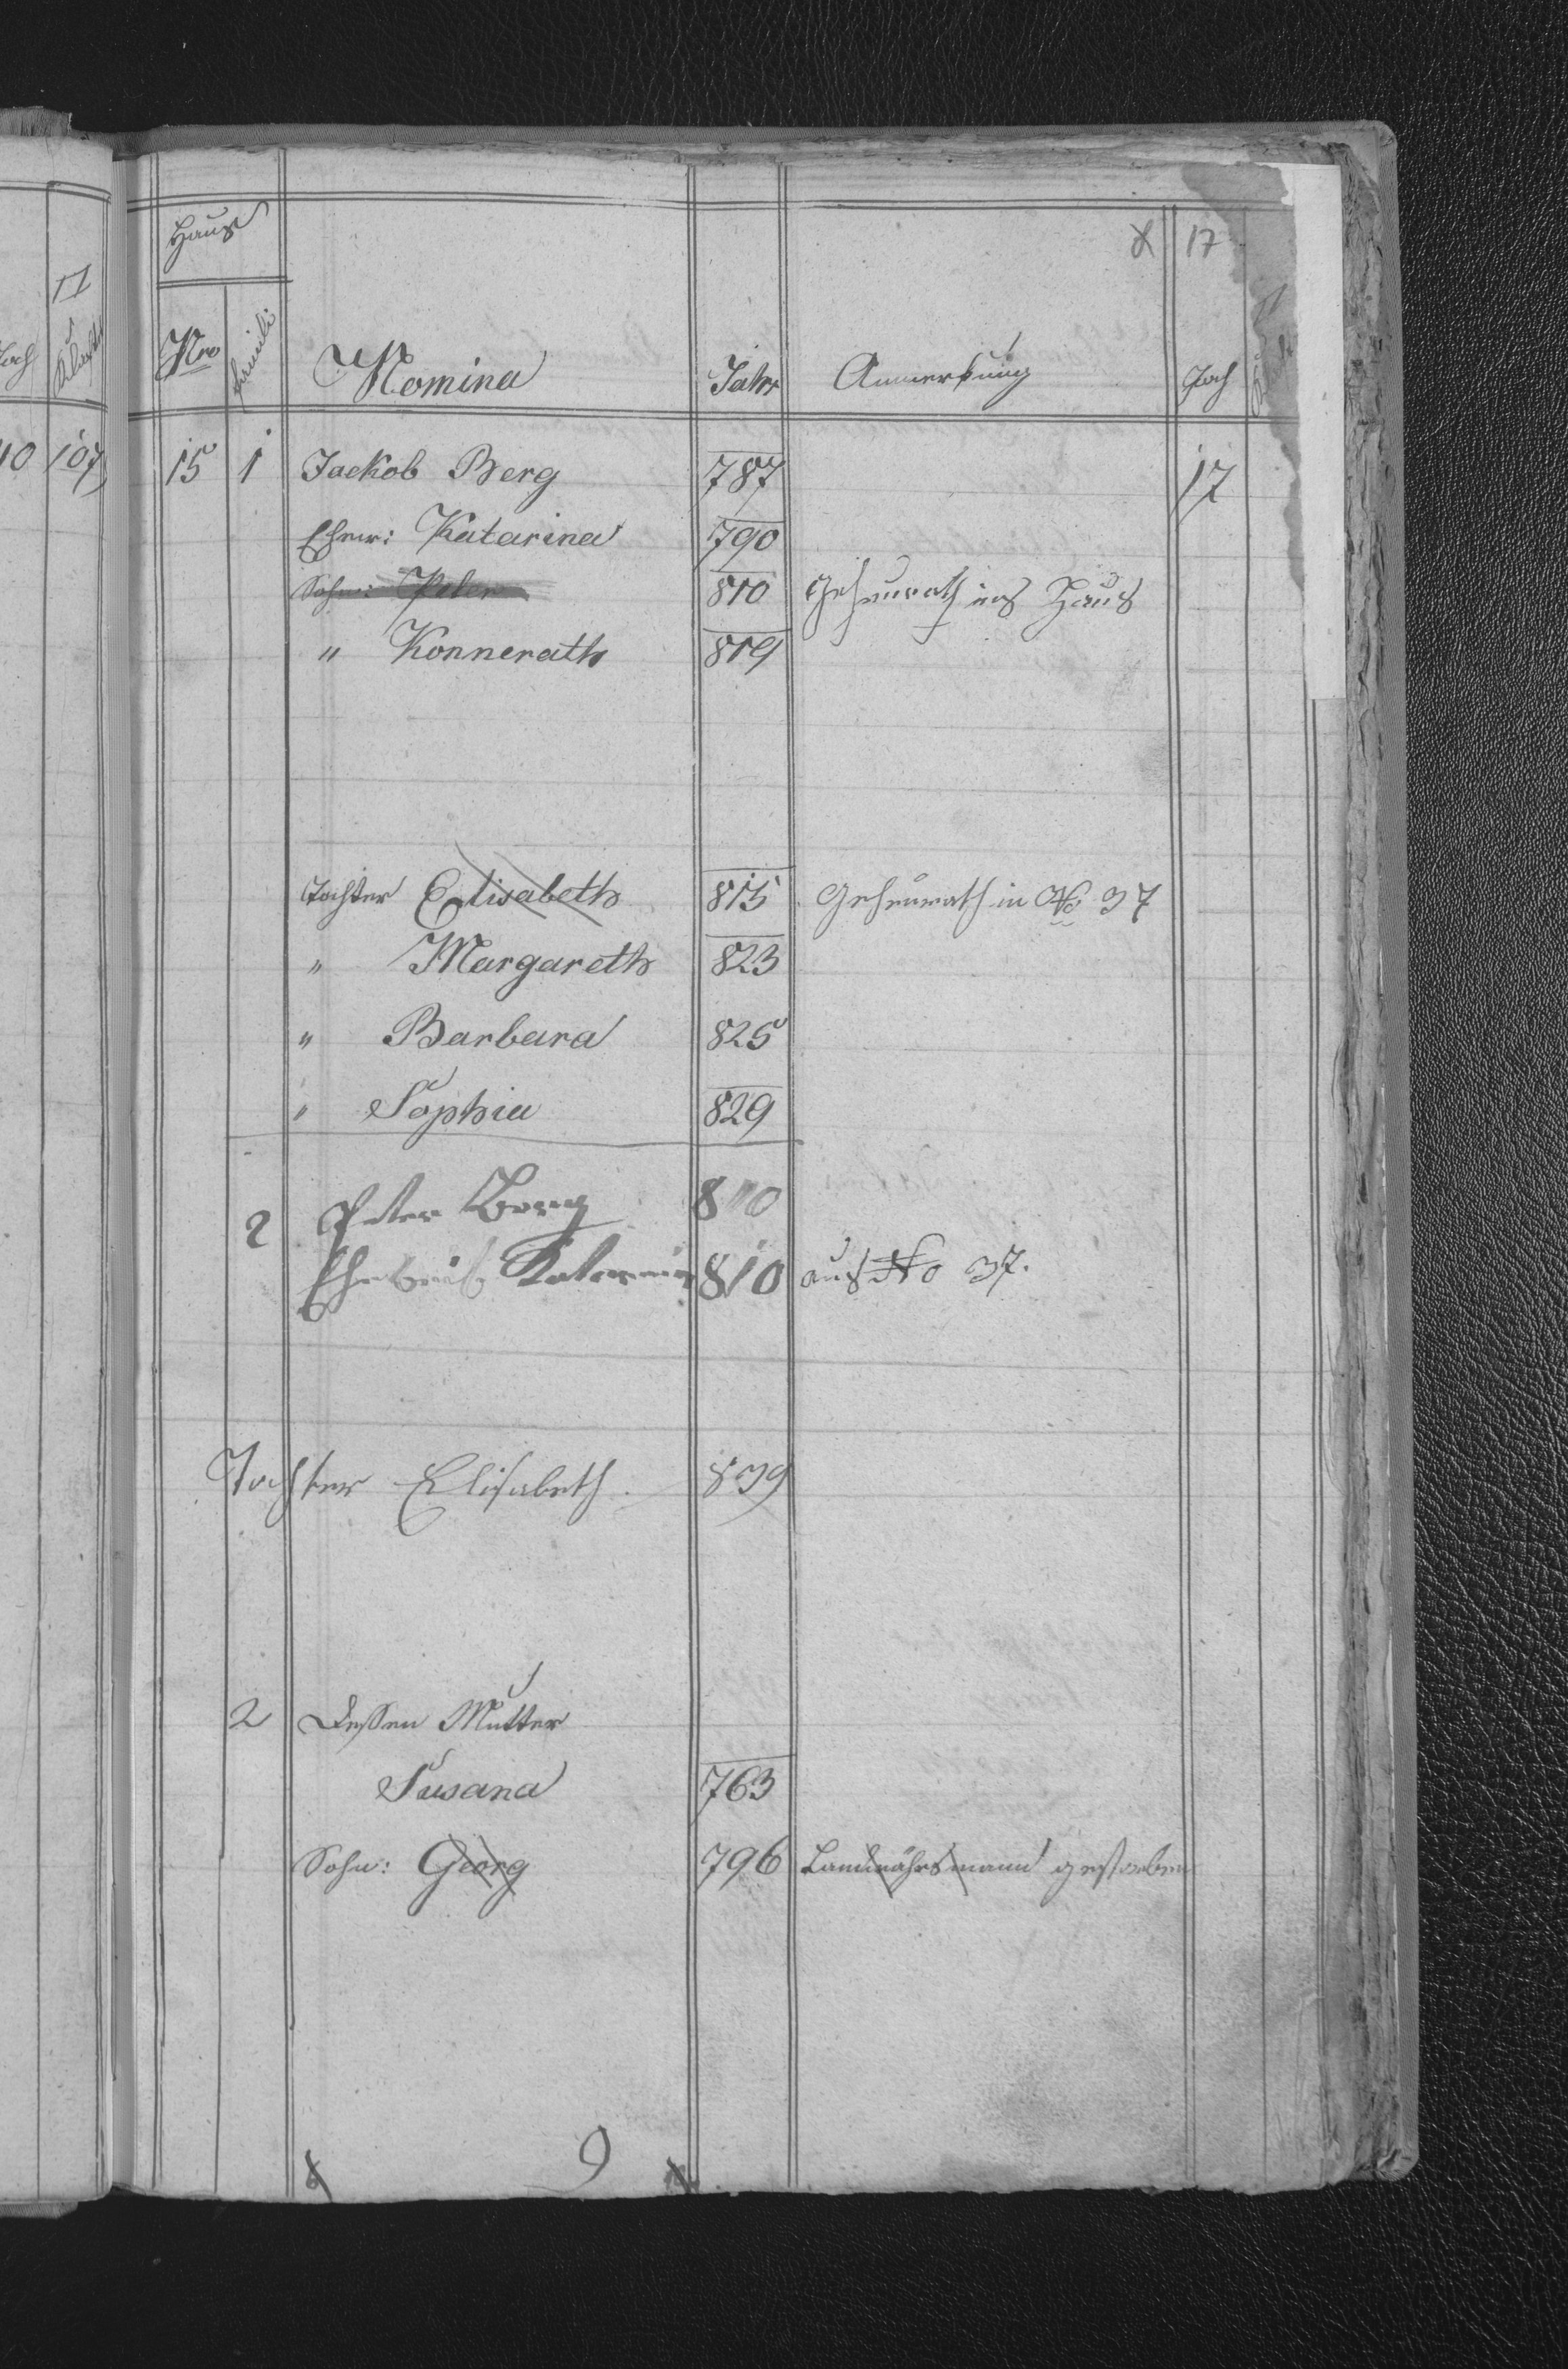 Haus
17
Nro Famili Nomina Jahr Anmerkung Joch
10 107
15 1 Jackob Berg 787 17
Ehew: Katarina 790
Sohn: Peter 810 Geheurath ins Haus
" Konnerath 819
Tochter Elisabeth 815 Geheurath in No 37
" Margareth 823
" Barbara 825
" Sophia 829
2 Peter Berg 810
Eheweib Katarina 810 aus No 37.
Tochter Elisabeth. 839
2 Dessen Mutter
Susana 763
Sohn: Georg 796 gestorben
9